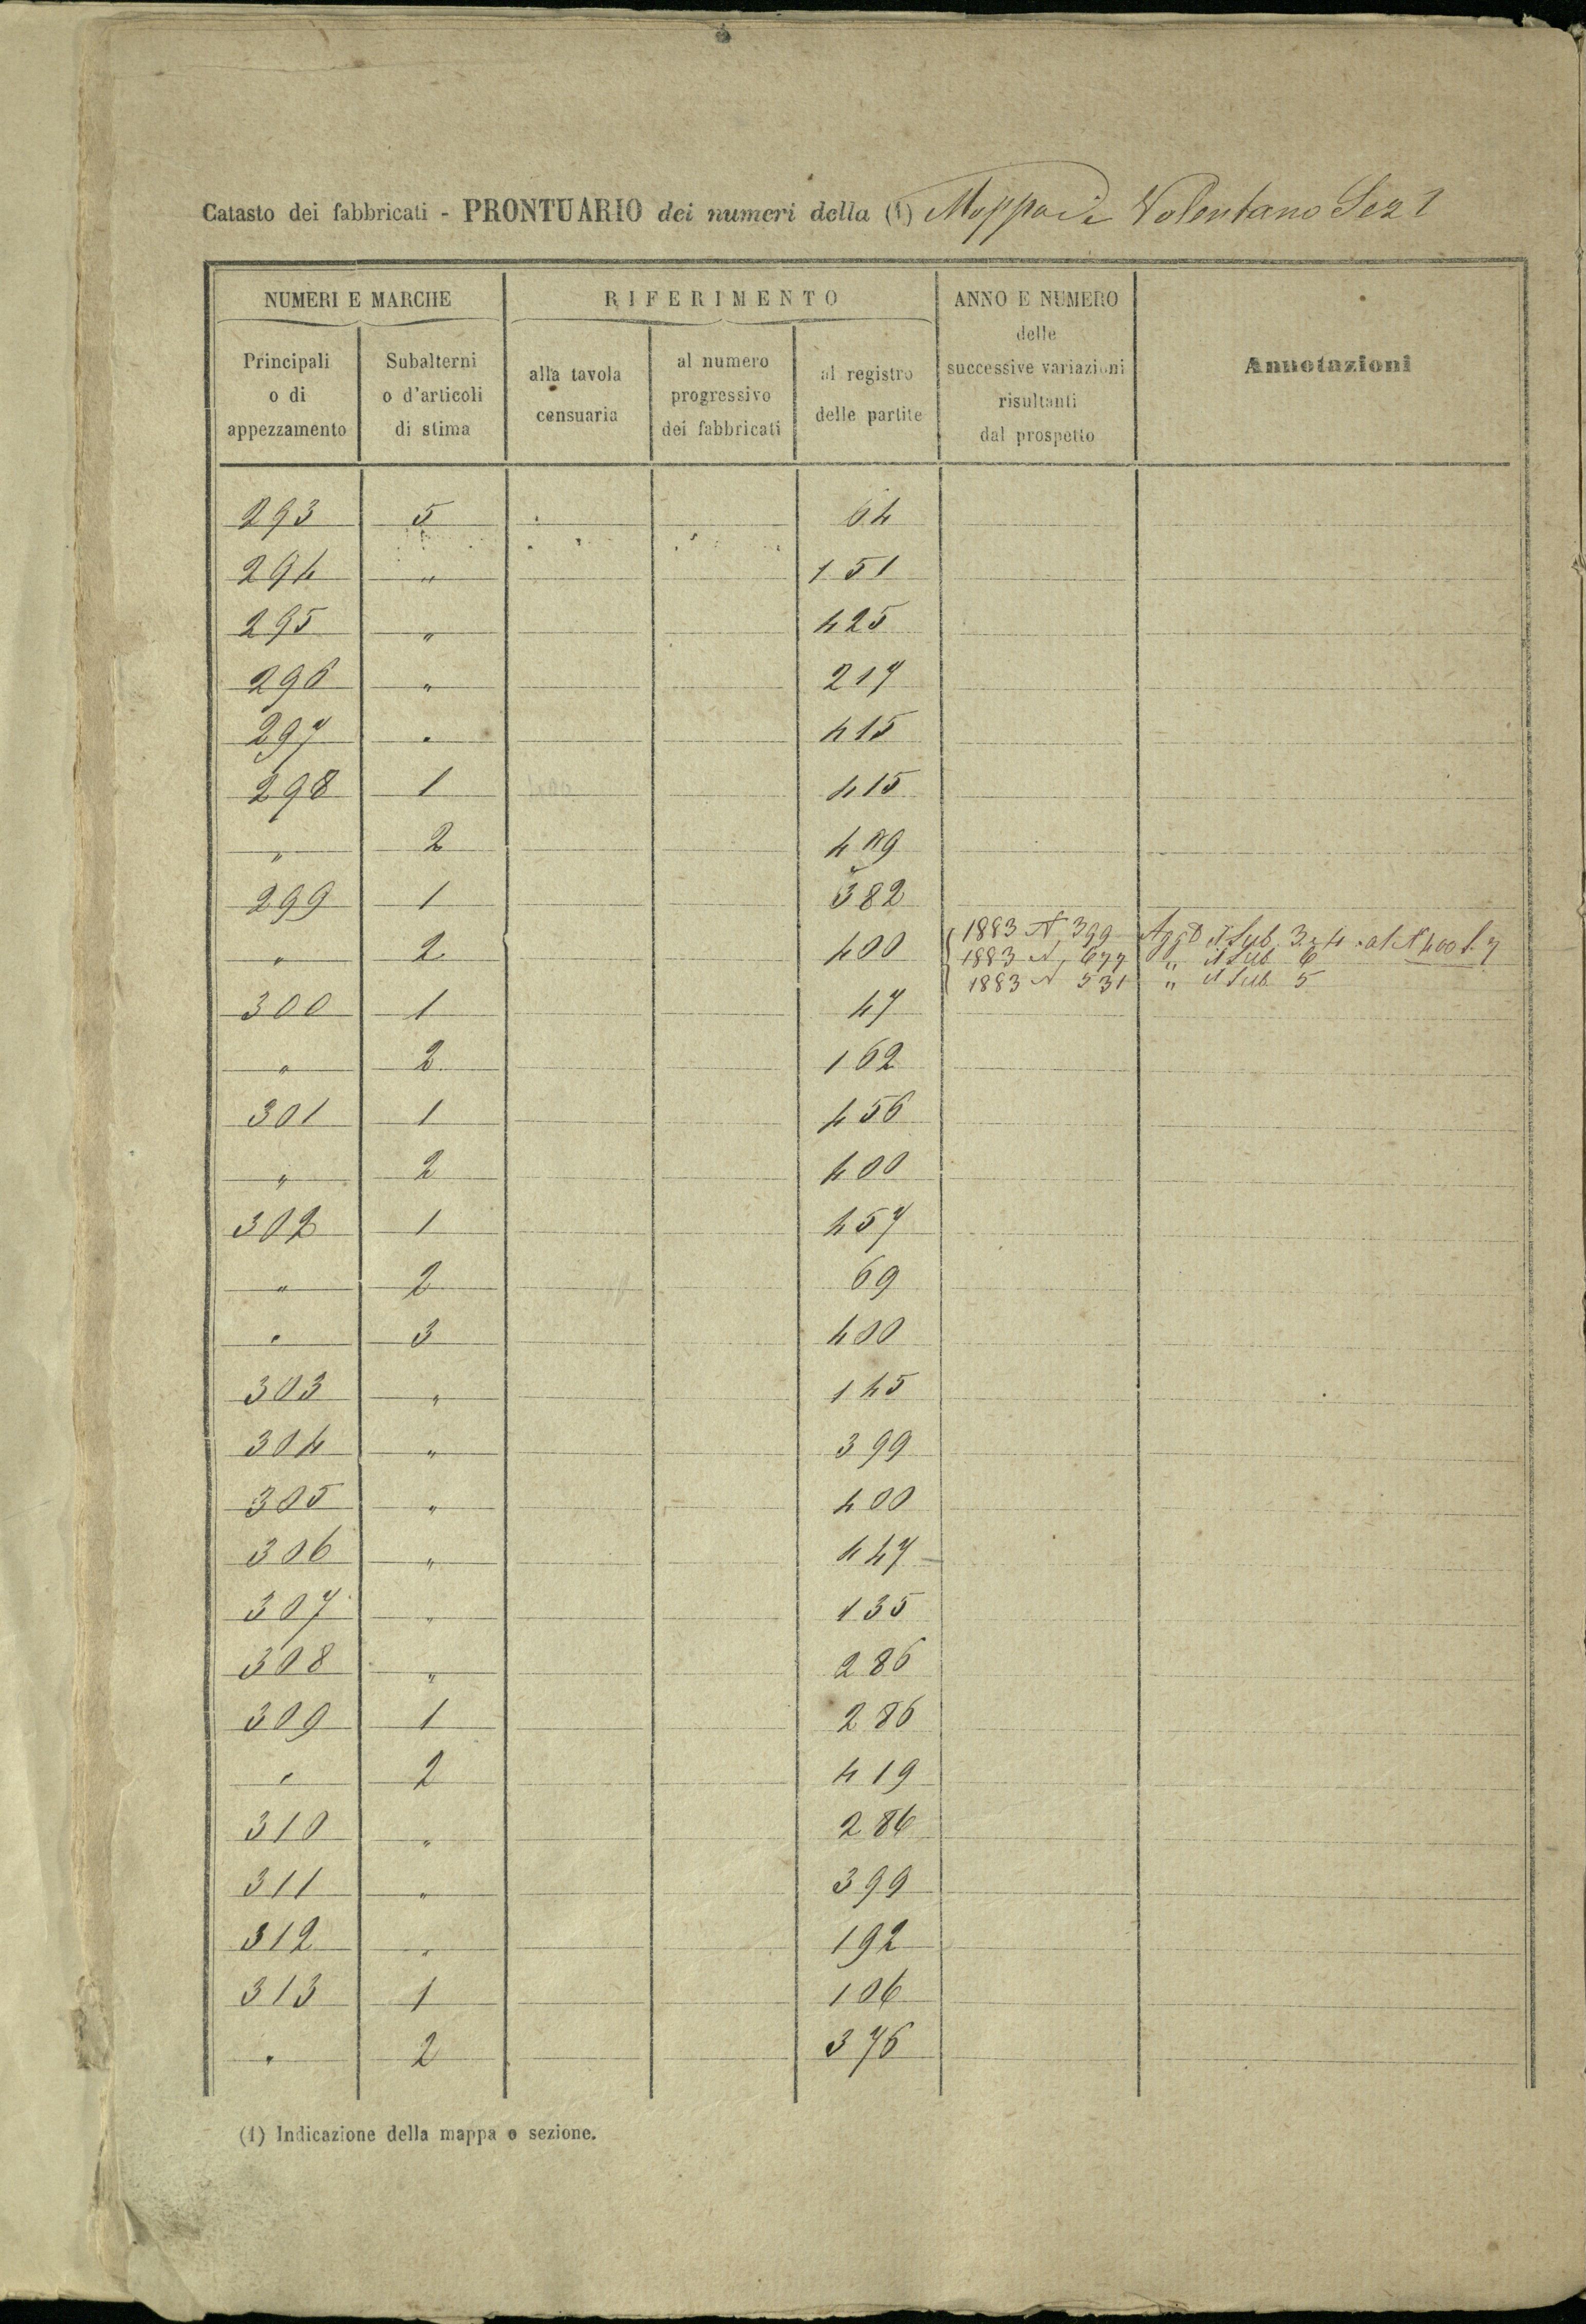 Catasto dei fabbricati - PRONTUARIO dei numeri della (1) Mappa di Valentano Sez 1
NUMERI E MARCHE RIFERIMENTO ANNO E NUMERO delle successive variazioni risultanti dal prospetto Annotazioni
Principali o di appezzamento Subalterni o d'articoli di stima alla tavola censuaria al numero progressivo dei fabbricati al registro delle partite
293 5 64
294 " 151
295 " 425
296 " 217
297 " 415
298 1 415
" 2 409
299 1 382
1883 N 399 Agg° il Sub 3 e 4 al N 400
" 2 400
1883 N 677 " il Sub 6
1883 N 531 " il Sub 5
300 1 47
" 2 162
301 1 456
" 2 400
302 1 457
" 2 69
" 3 400
303 " 145
304 " 399
305 " 400
306 " 447
307 " 135
308 " 286
309 1 286
" 2 419
310 " 286
311 " 399
312 " 192
313 1 106
" 2 376
(1) Indicazione della mappa o sezione.